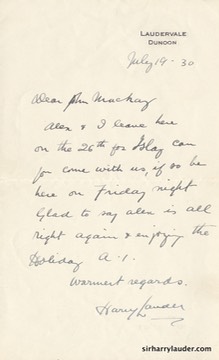 LAUDERVALE
DUNOON
July 19-30
Dear John Mackay
Alex & I leave here
on the 26th for Islay can
you come with us, if so be
here on Friday night
Glad to say alex is all
right again & enjoying the
Holiday A.1.
Warmest regards.
Harry Lauder
sirharrylauder.com